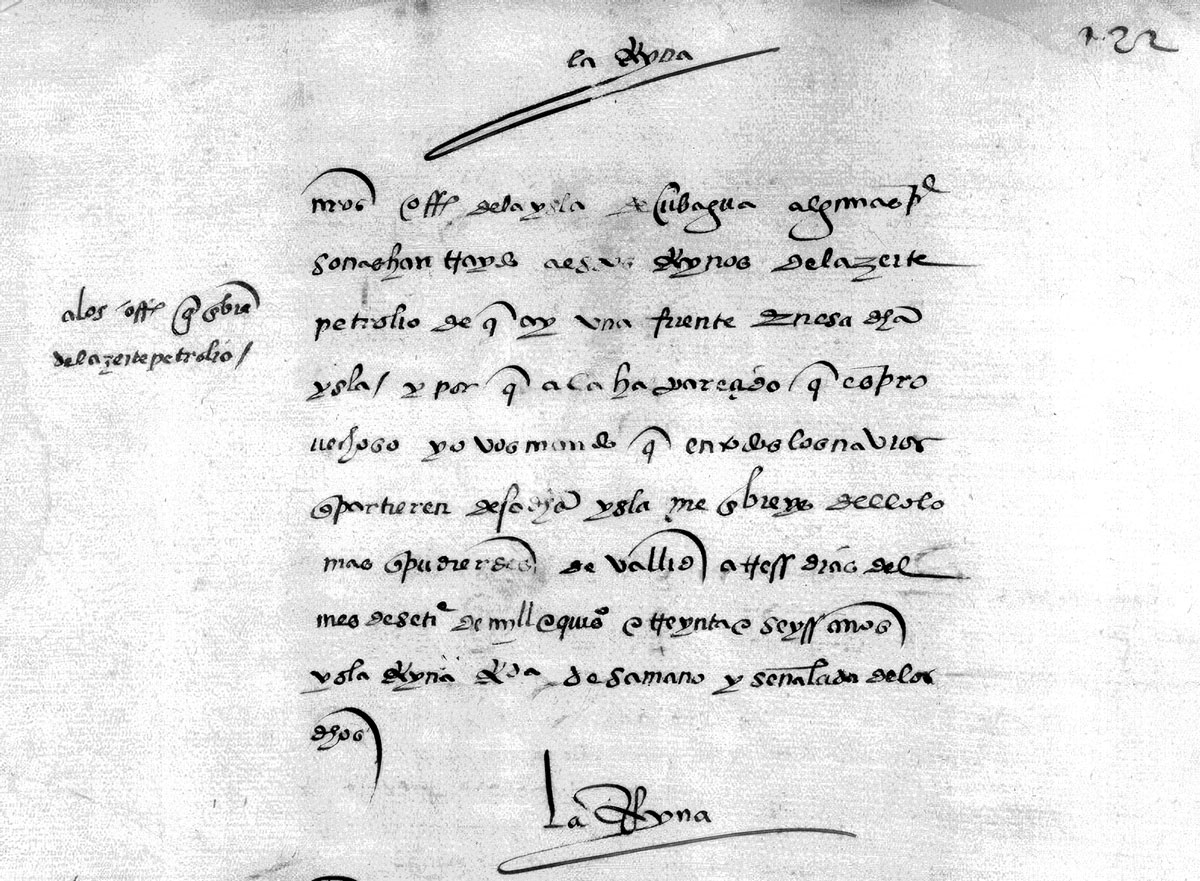 122
la Reyna
nros offs dela ysla de Cubagua algunas pr
sonas han traydo a esos Reynos del azeite
petrolio de q ay una fuente En esa dha
alos offs q enbien
del azeite petrolio/
ysla/ y por q aca ha pareçido q es pro
vechoso yo vos mando q en todos los navios
q partieren desa dha ysla me enbieys dello lo
mas q pudierdes de vallid a tres dias del
mes de seti e de mill e quis o e treynta e seys años
yo la Reyna Rda de samano y señalada de los
dhos
La Reyna